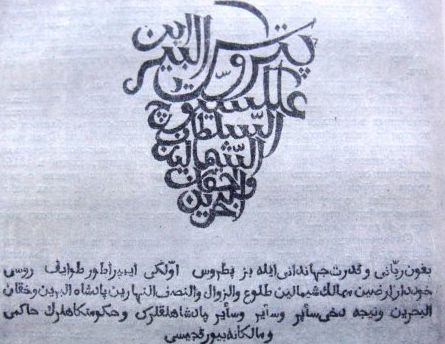 ابن
پتروس البیر
علكسیوچ
السلطان
الشمالین
والخقان
البحرین
بعون ربّانی و قدرت جهاندانی ایله بز پطروس اوّلكی ایمپراطور طوایف روسی
خوددار ارضین ممالك شمالین طلوع والزوال والنصف النهارین پادشاه البرین وخقان
البحرین ونیجه دخی سایر وسایر وسایر پادشاهلقلری و حكومتكاهلرك حاكمی
و مالكانه بیورقچیسی